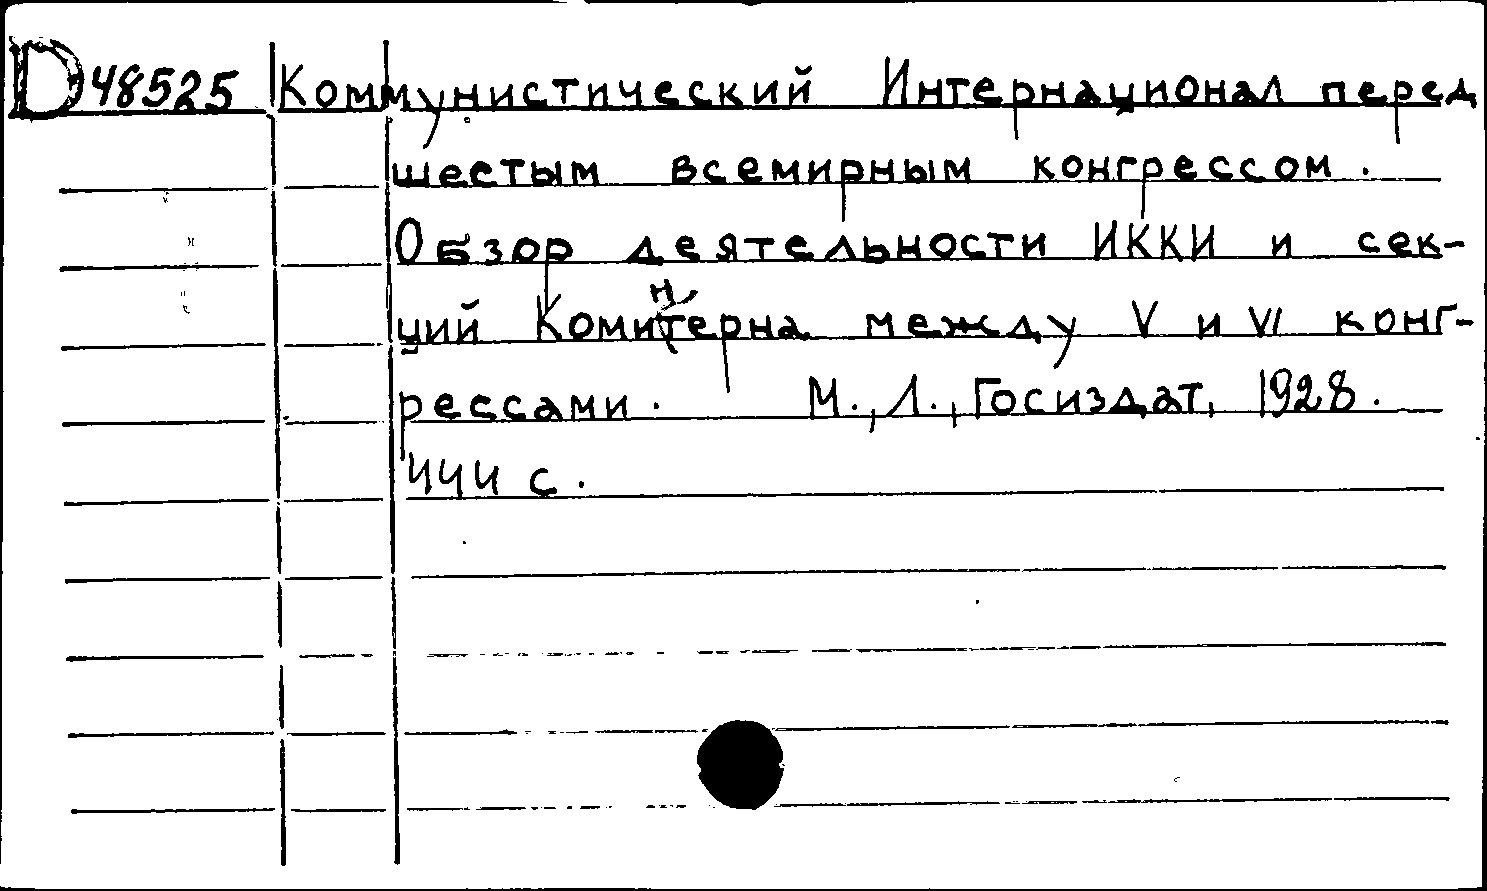 D48525 Коммунистический Интернационал перед
шестым всемирным конгрессом.
Обзор деятельности ИККИ и сек-
ций Коминтерна между V и VI конг-
рессами. М., Л., Госиздат, 1928.
444 с.